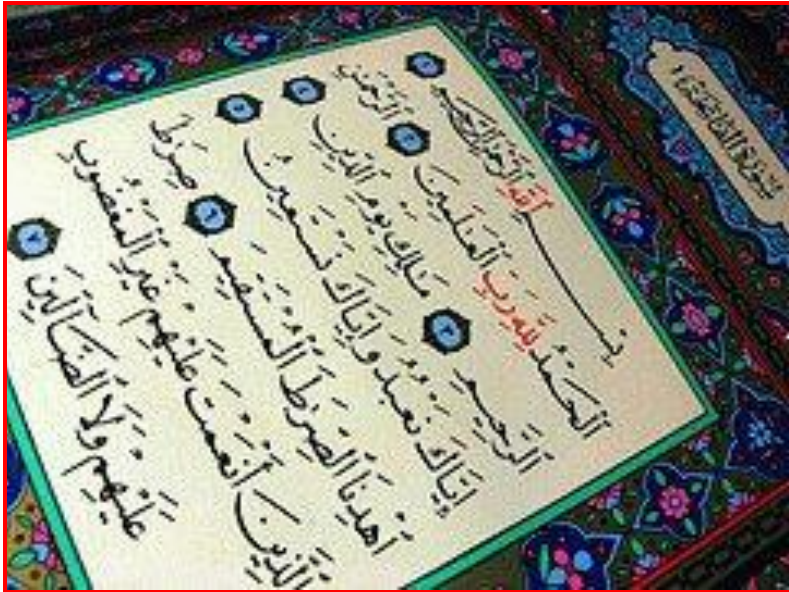 سورة الفاتحة
بسم الله الرحمن الرحيم ١
الحمد لله رب العلمين ٢ الرحمن
الرحيم ٣ ملك يوم الدين ٤
إياك نعبد وإياك نستعين ٥
اهدنا الصرط المستقيم ٦ صرط
الذين أنعمت عليهم غير المغضوب
عليهم ولا الضالين ٧